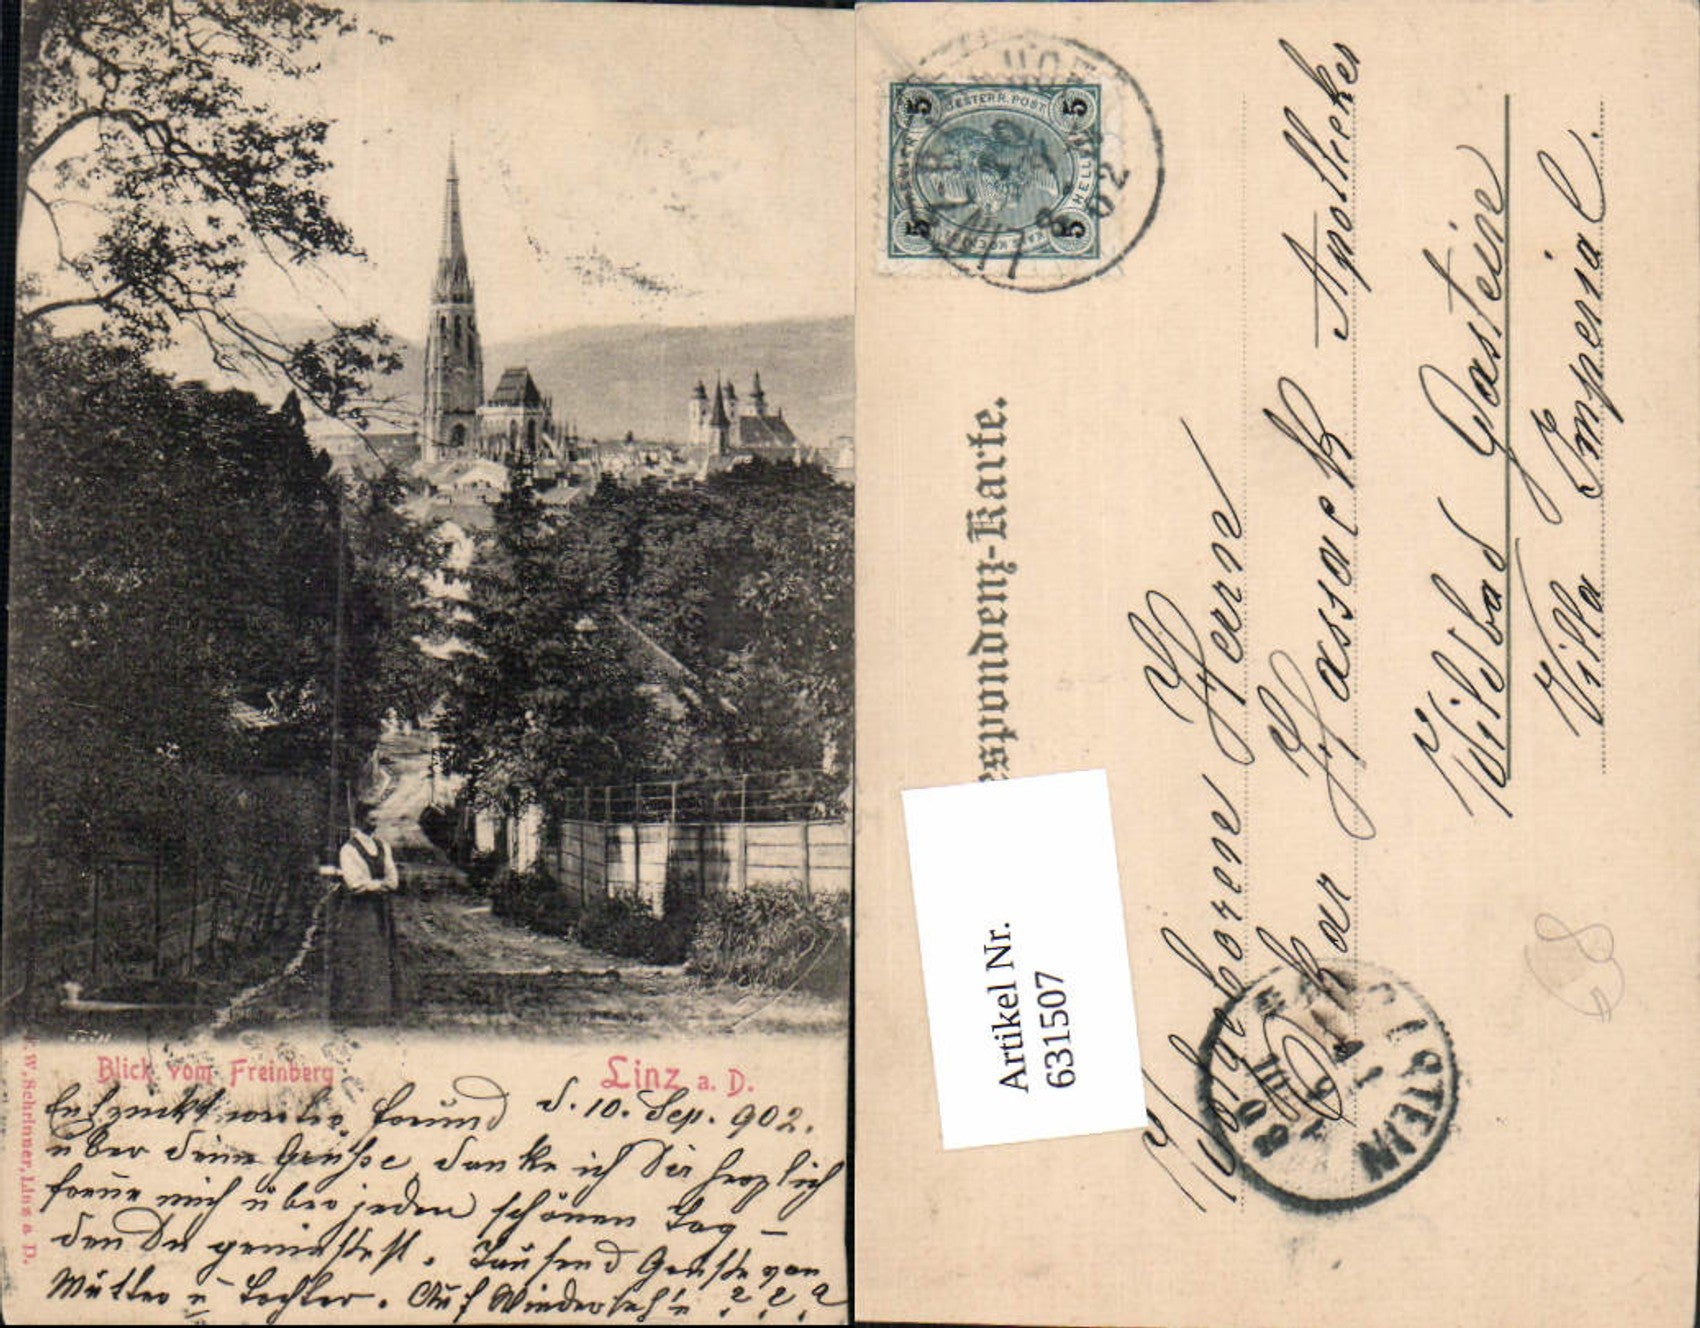 Blick vom Freinberg
Linz a. D.
F. W. Schrinner, Linz a. D.
d. 10. Sep. 902.
Entzückt werther Freund
über deine Grüße danke ich Dir herzlich
freue mich über jeden schönen Tag –
den Du genießest. Tausend Grüße von
Mutter u Tochter. Auf Wiederseh'n ? ? ?
5 OESTERR. POST 5
HELLER
5 5
LINZ
02
Correspondenz-Karte.
Wolgeborene Herrn
Hassack Apotheker
Wildbad Gasteine
Villa Imperial.
BAD GASTEIN
Artikel Nr.
631507